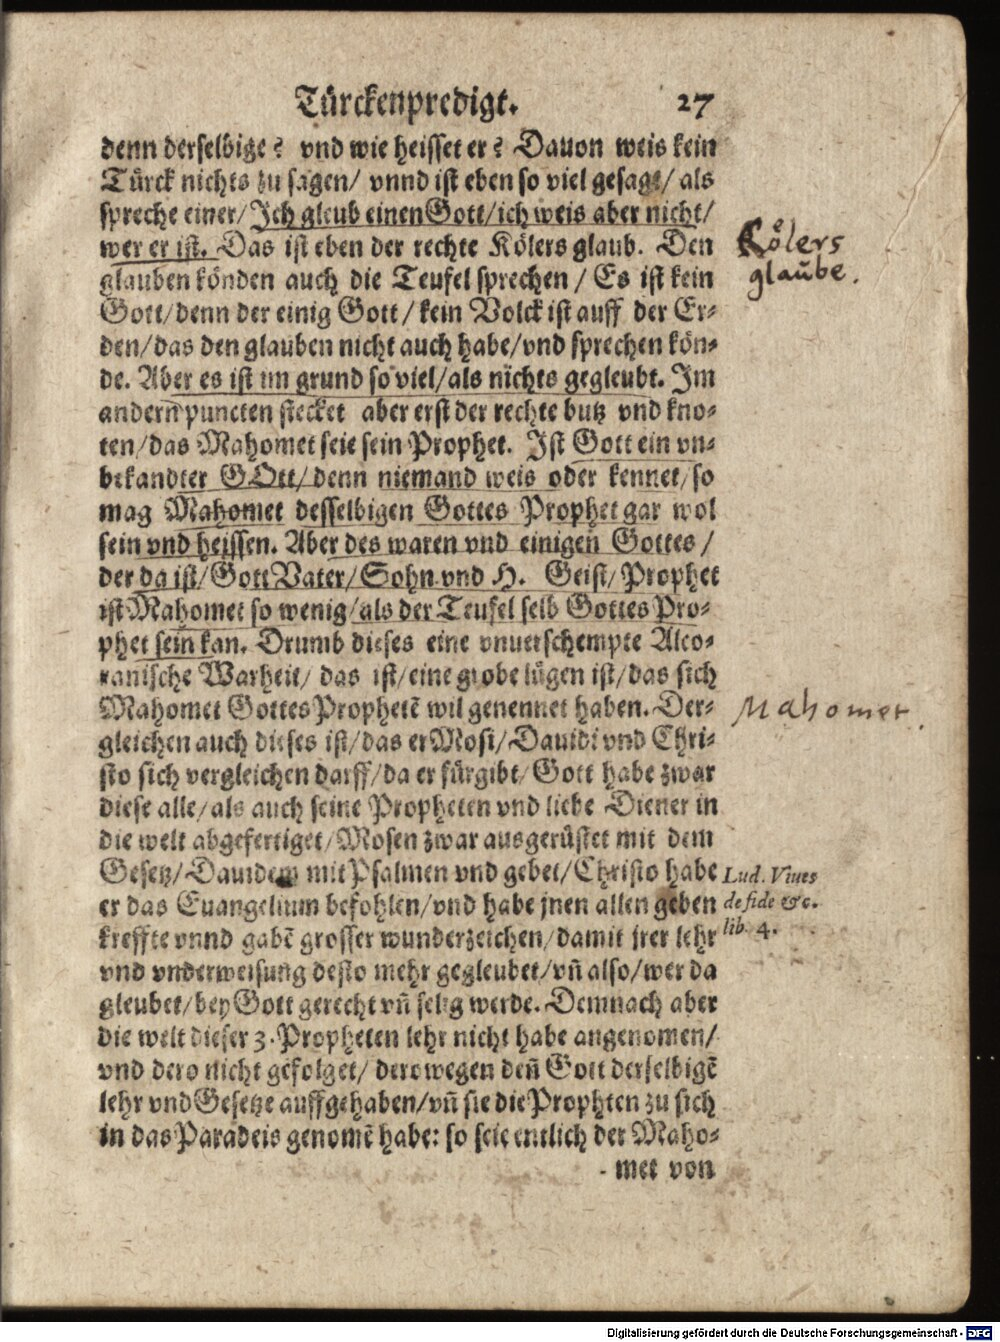 Türckenpredigt. 27
denn derselbige? vnd wie heisset er? Dauon weis kein
Türck nichts zu sagen/ vnnd ist eben so viel gesagt/ als
spreche einer/ Ich gleub einen Gott/ ich weis aber nicht/
wer er ist. Das ist eben der rechte Kölers glaub. Den
glauben könden auch die Teufel sprechen / Es ist kein
Gott/ denn der einig Gott/ kein Volck ist auff der Er-
den/ das den glauben nicht auch habe/ vnd sprechen kön-
de. Aber es ist im grund so viel/ als nichts gegleubt. Im
andern puncten stecket aber erst der rechte butz vnd kno-
ten/ das Mahomet seie sein Prophet. Ist Gott ein vn-
bekandter GOtt/ denn niemand weis oder kennet/ so
mag Mahomet desselbigen Gottes Prophet gar wol
sein vnd heissen. Aber des waren vnd einigen Gottes /
der da ist/ Gott Vater/ Sohn vnd H. Geist/ Prophet
ist Mahomet so wenig/ als der Teufel selb Gottes Pro-
phet sein kan. Drumb dieses eine vnuerschempte Alco-
ranische Warheit/ das ist/ eine grobe lügen ist/ das sich
Mahomet Gottes Prophetē wil genennet haben. Der-
gleichen auch dieses ist/ das er Mosi/ Dauidi vnd Chri-
sto sich vergleichen darff/ da er fürgibt/ Gott habe zwar
diese alle/ als auch seine Propheten vnd liebe Diener in
die welt abgefertiget/ Mosen zwar ausgerüstet mit dem
Gesetz/ Dauidem mit Psalmen vnd gebet/ Christo habe
er das Euangelium befohlen/ vnd habe jnen allen geben
kreffte vnnd gabē grosser wunderzeichen/ damit jrer lehr
vnd vnderweisung desto mehr gegleubet/ vñ also/ wer da
gleubet/ bey Gott gerecht vñ selig werde. Demnach aber
die welt dieser 3. Propheten lehr nicht habe angenomen/
vnd dero nicht gefolget/ derowegen deñ Gott derselbigē
lehr vnd Gesetze auffgehaben/ vñ sie die Prophten zu sich
in das Paradeis genomē habe: so seie entlich der Maho-
met von
Kölers
glaube.
Mahomet.
Lud. Viues
de fide &c.
lib. 4.
Digitalisierung gefördert durch die Deutsche Forschungsgemeinschaft - DFG